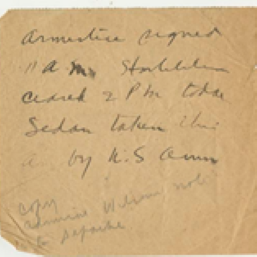 Armistice signed
11 a.m. Hostilities
ceased 2 PM today
Sedan taken this
a by U.S Army
Copy
Admiral Wilson note
to